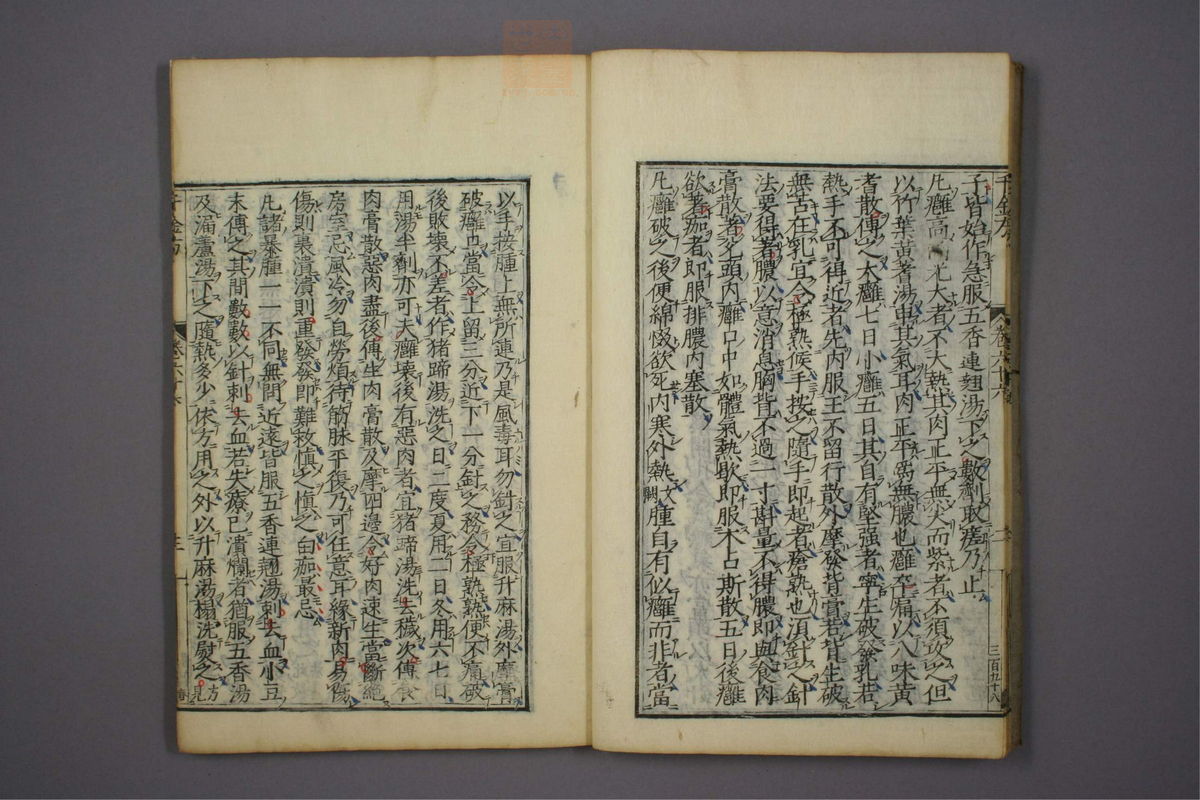 子皆始作急服五香連翹湯下之數劑取瘥乃止
凡癰高而光大者不大熱其肉正平無尖而紫者不須攻之但
以竹葉黃耆湯申其氣耳肉正平為無膿也癰卒痛以八味黃
耆散傅之大癰七日小癰五日其自有堅強者寧生破發乳若
熱手不可得近者先內服王不留行散外摩發背膏若背生破
無苦在乳宜令極熟候手按之隨手即起者瘡熟也須針之針
法要得著膿以意消息胸背不過一寸斟量不得膿即與食肉
膏散著尖頭內癰口中如體氣熱歇即服木占斯散五日後癰
欲著痂者即服排膿內塞散
凡癰破之後便綿惙欲死內寒外熱腫自有似癰而非者當
以手按腫上無所連乃是風毒耳勿針之宜服升麻湯外摩膏
破癰口當令上留三分近下一分針之務令極熟熟便不痛破
後敗壞不差者作猪蹄湯洗之日二度夏用二日冬用六七日
用湯半劑亦可夫癰壞後有惡肉者宜猪蹄湯洗去穢次傅食
肉膏散惡肉盡後傅生肉膏散及摩四邊令好肉速生當斷絕
房室忌風冷勿自勞煩待筋脉平復乃可任意耳緣新肉易傷
傷則裏潰潰則重發發即難救慎之慎之白痂最忌
凡諸暴腫一一不同無問近遠皆服五香連翹湯刺去血小豆
末傅之其間數數以針刺去血若失療已潰爛者猶服五香湯
及漏蘆湯下之隨熱多少依方用之外以升麻湯搨洗熨之方見
千金方
卷六十六
三百九十八